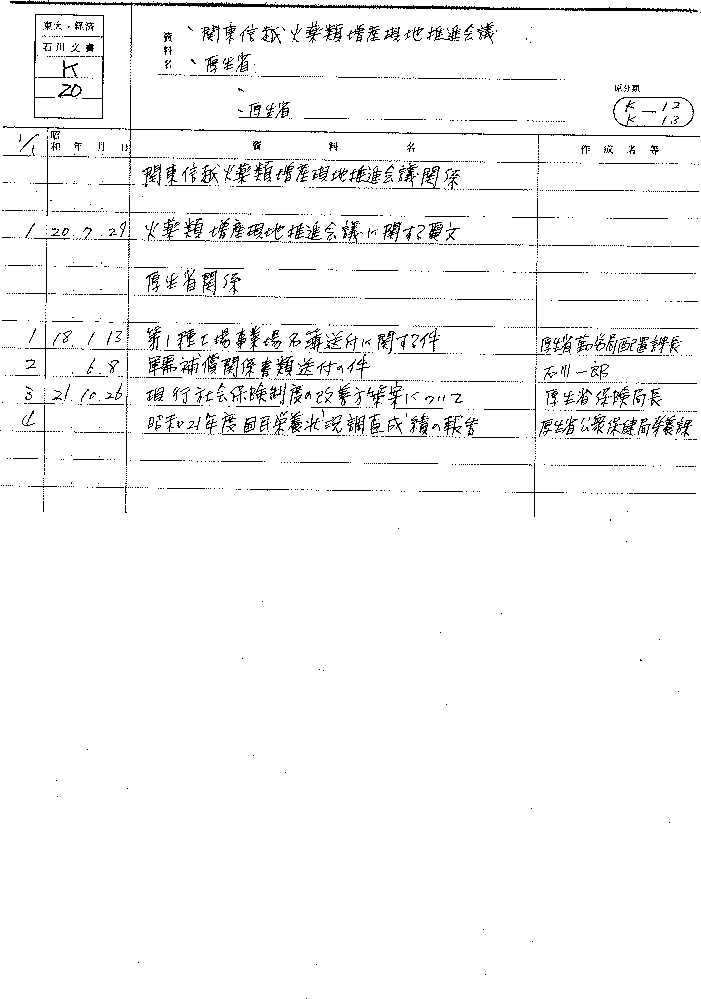 東大・経済
石川文書
K
20
資料名
、関東信越火薬類増産現地推進会議
、厚生省
、
、厚生省
原分類
K-12
K-13
1/1 昭和 年 月 日 資料名 作成名等
関東信越火薬類増産現地推進会議関係
1 20.7.29 火薬類増産現地推進会議に関する要文
厚生省関係
1 18.1.13 第1種工場事業場名簿送付に関する件 厚生省勤労局配置課長
2 6.8 補償関係書類送付の件 石川一郎
3 21.10.26 現行社会保険制度の改善方策案について 厚生省保険局長
4 昭和21年度国民栄養状況調査成績の報告 厚生省公衆保健局栄養課